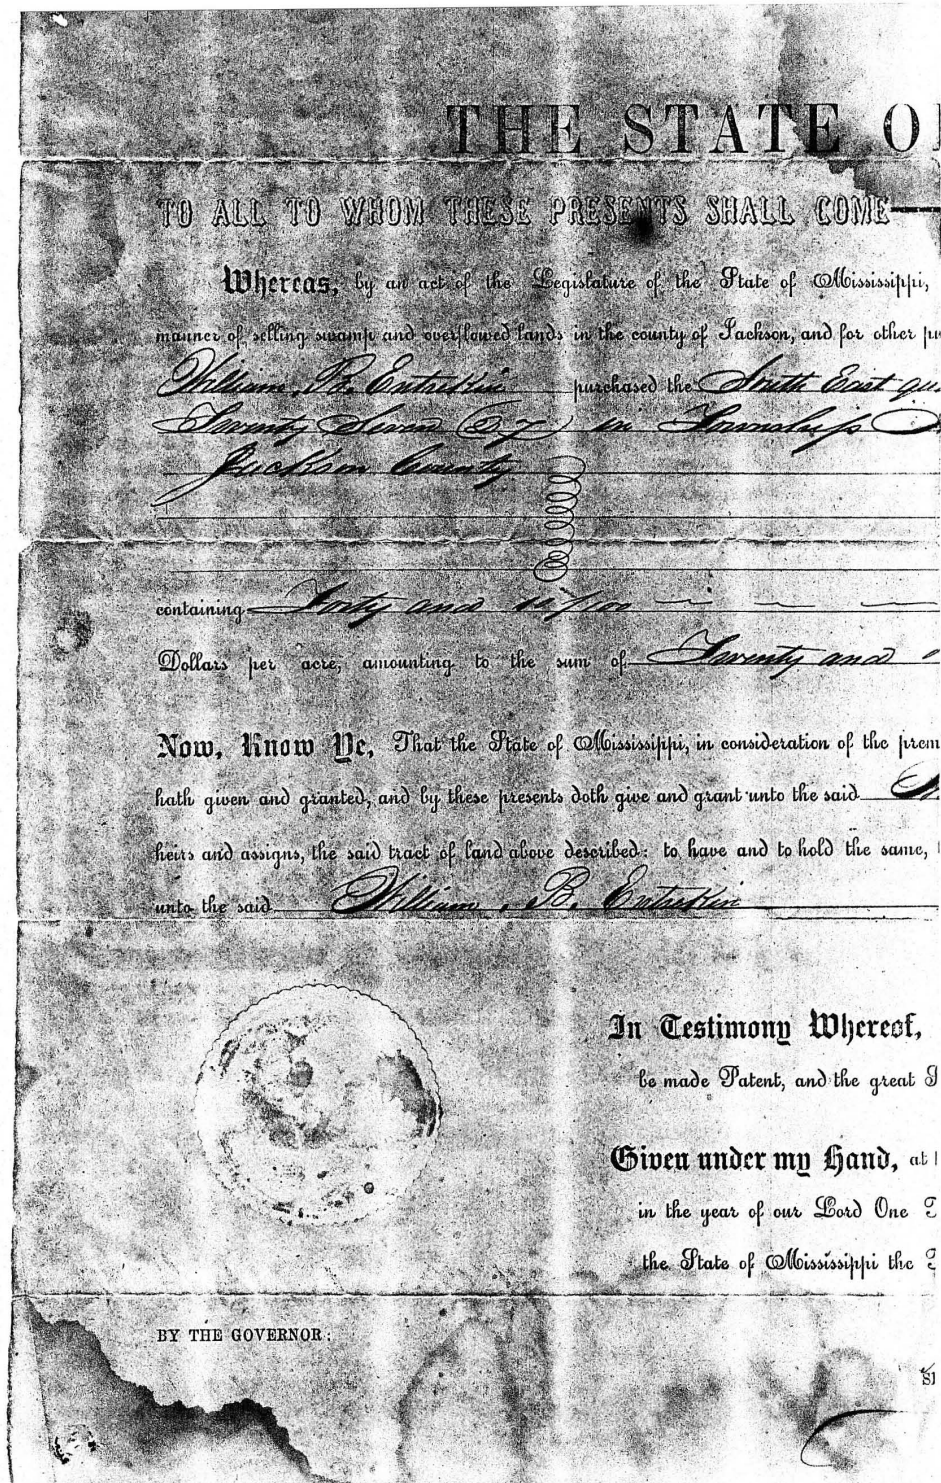 THE STATE O
TO ALL TO WHOM THESE PRESENTS SHALL COME
Whereas, by an act of the Legislature of the State of Mississippi,
manner of selling swamp and overflowed lands in the county of Jackson, and for other
William B. Entrekin purchased the South East
Twenty Seven (27) in Township
Jackson County
containing Forty and /100
Dollars per acre, amounting to the sum of Twenty and
Now, Know Ye, That the State of Mississippi, in consideration of the prem
hath given and granted, and by these presents doth give and grant unto the said
heirs and assigns, the said tract of land above described: to have and to hold the same,
unto the said William . B. Entrekin
In Testimony Whereof,
be made Patent, and the great
Given under my Hand, at
in the year of our Lord One
the State of Mississippi the
BY THE GOVERNOR: